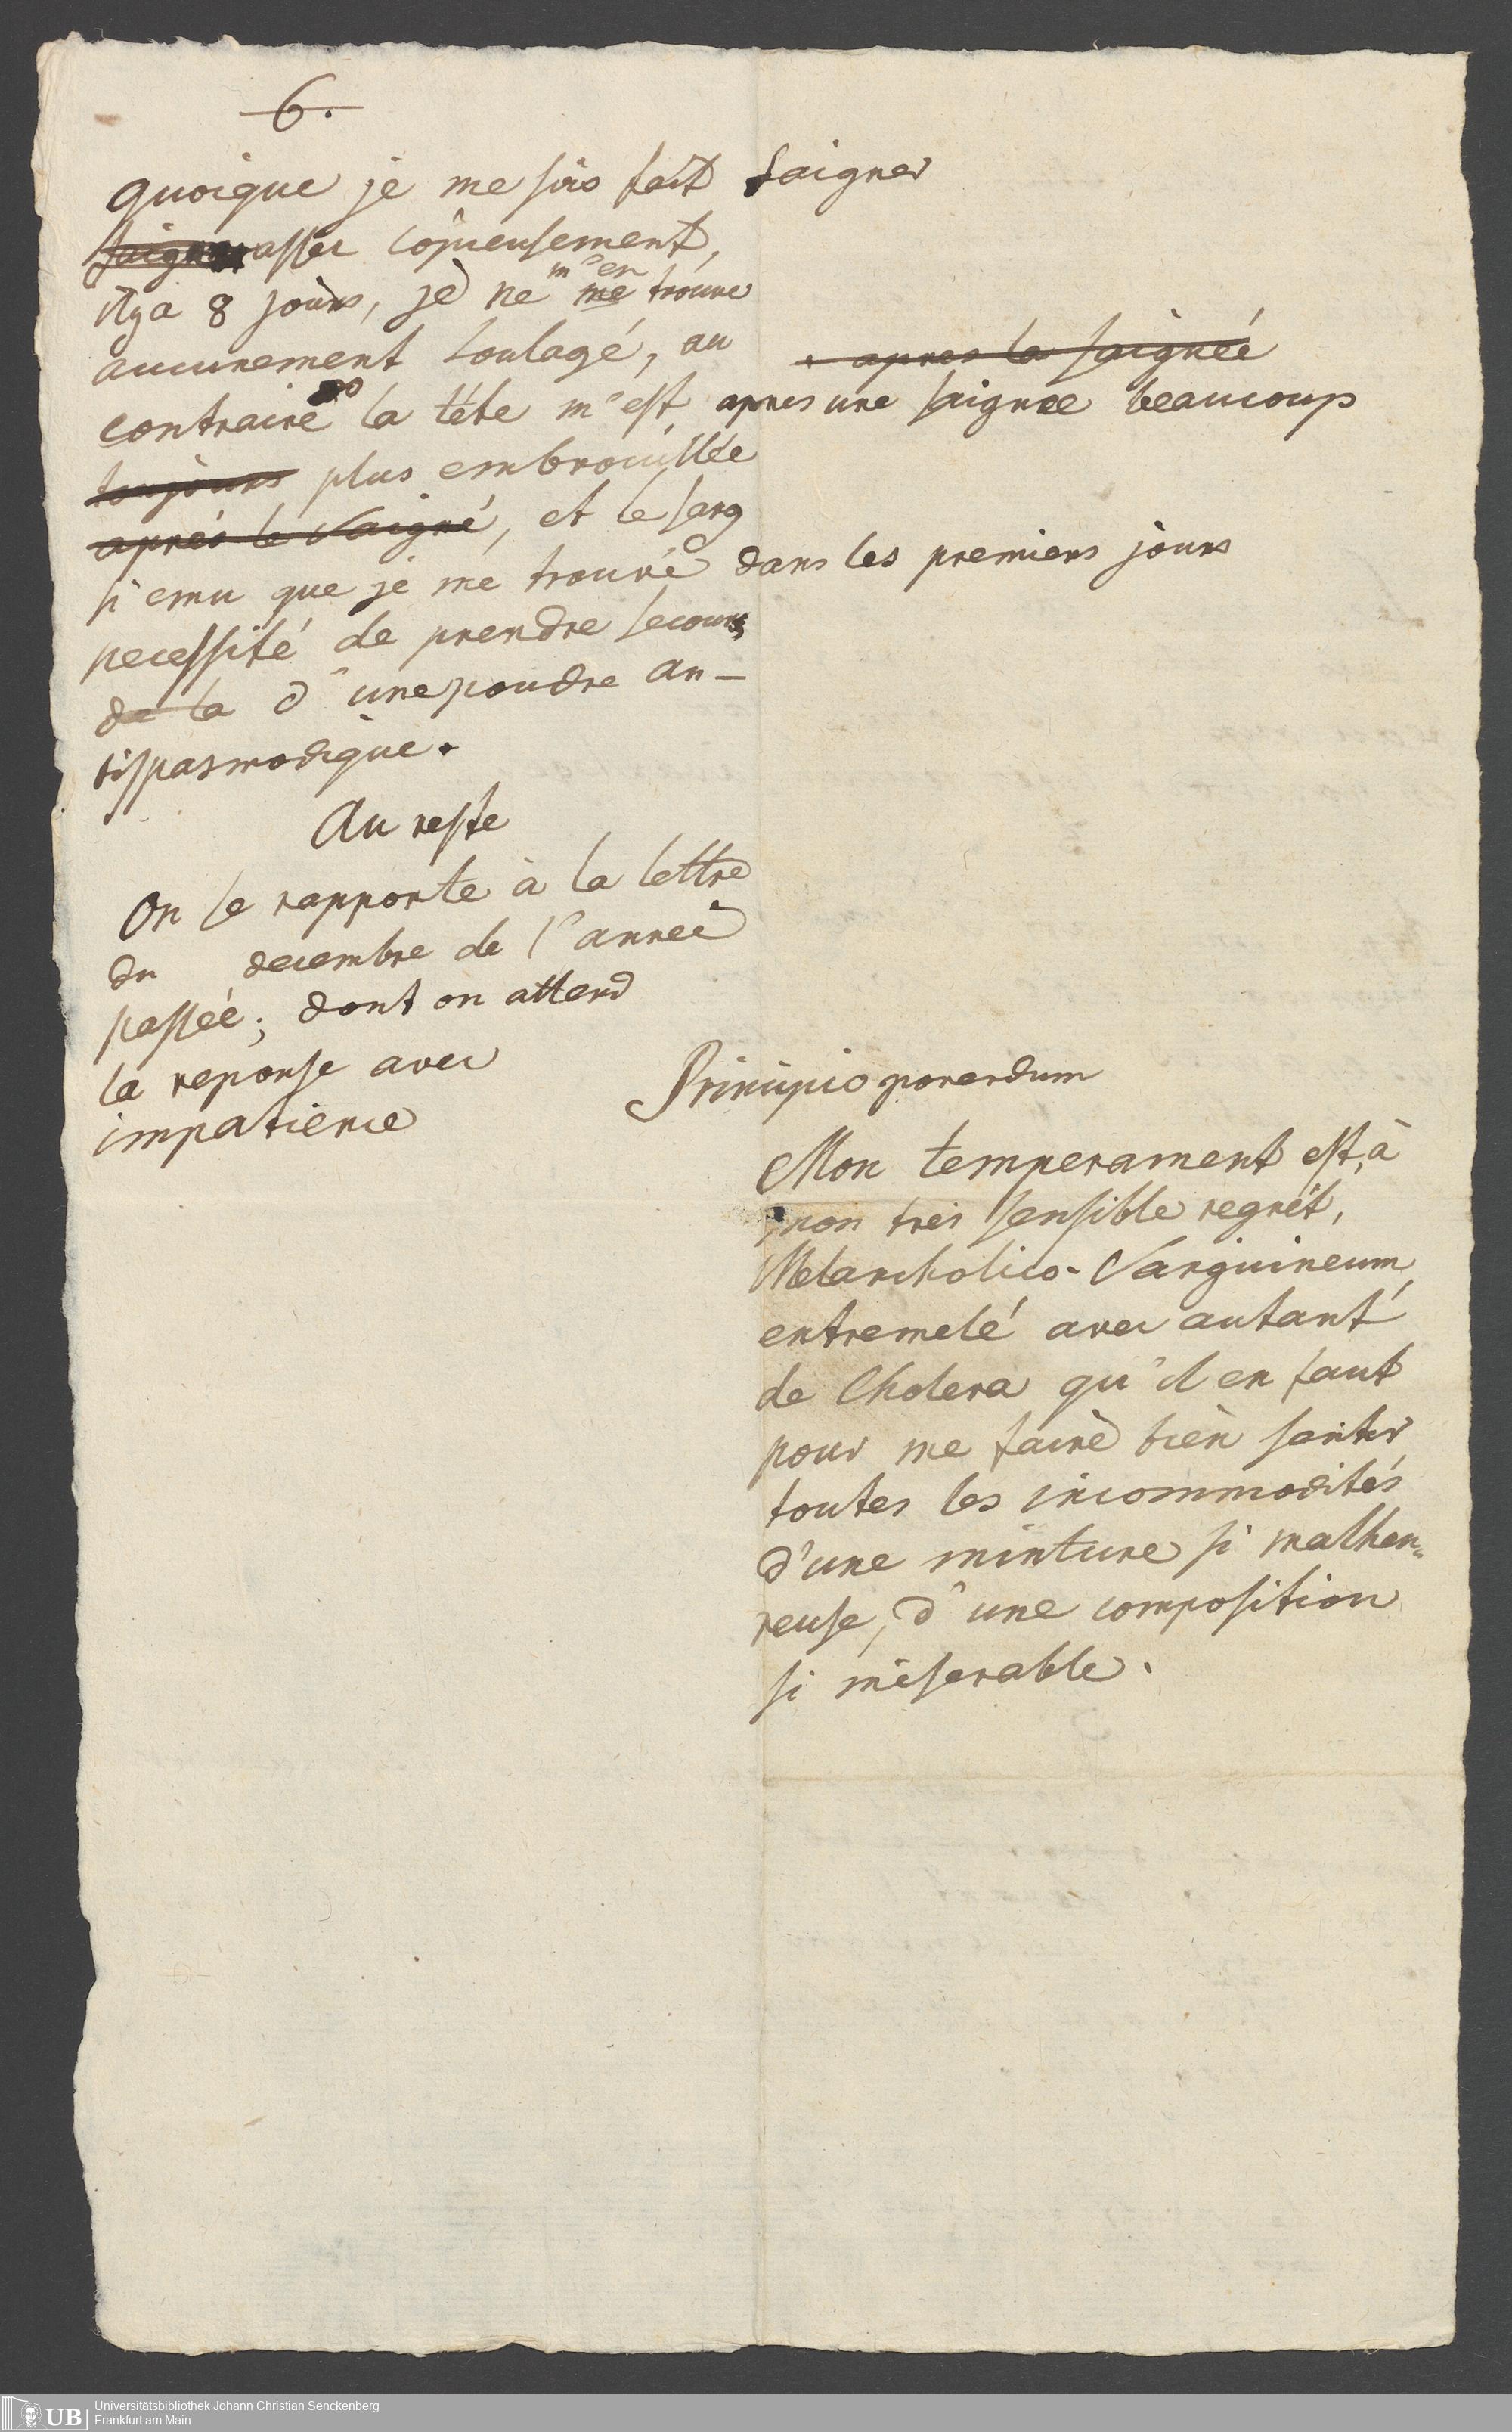 6.
quoique je me suis fait saigner
saigner assez copieusement,
il y a 8 jours, je ne m'en me trouve
aucunement soulagé, au après la saignée
contraire la tête m'est apres une saignee beaucoup
toujours plus embrouillée
aprés le saigné, et le sang
si emu que je me trouve dans les premiers jours
necessité de prendre secours
de la d'une poudre an-
tispasmodique.
Au reste
On se rapporte à la lettre
du decembre de l'anneé
passée; dont on attend
la reponse avec
impatience
Principio ponendum
Mon temperament est, à
mon tres sensible regrét,
Melancholico-Sanguineum
entremelé avec autant
de Cholera qu'il en faut
pour me faire bien sentir
toutes les incommodités
d'une minture si malheu-
reuse, d'une composition
si miserable.
UB Universitätsbibliothek Johann Christian Senckenberg
Frankfurt am Main